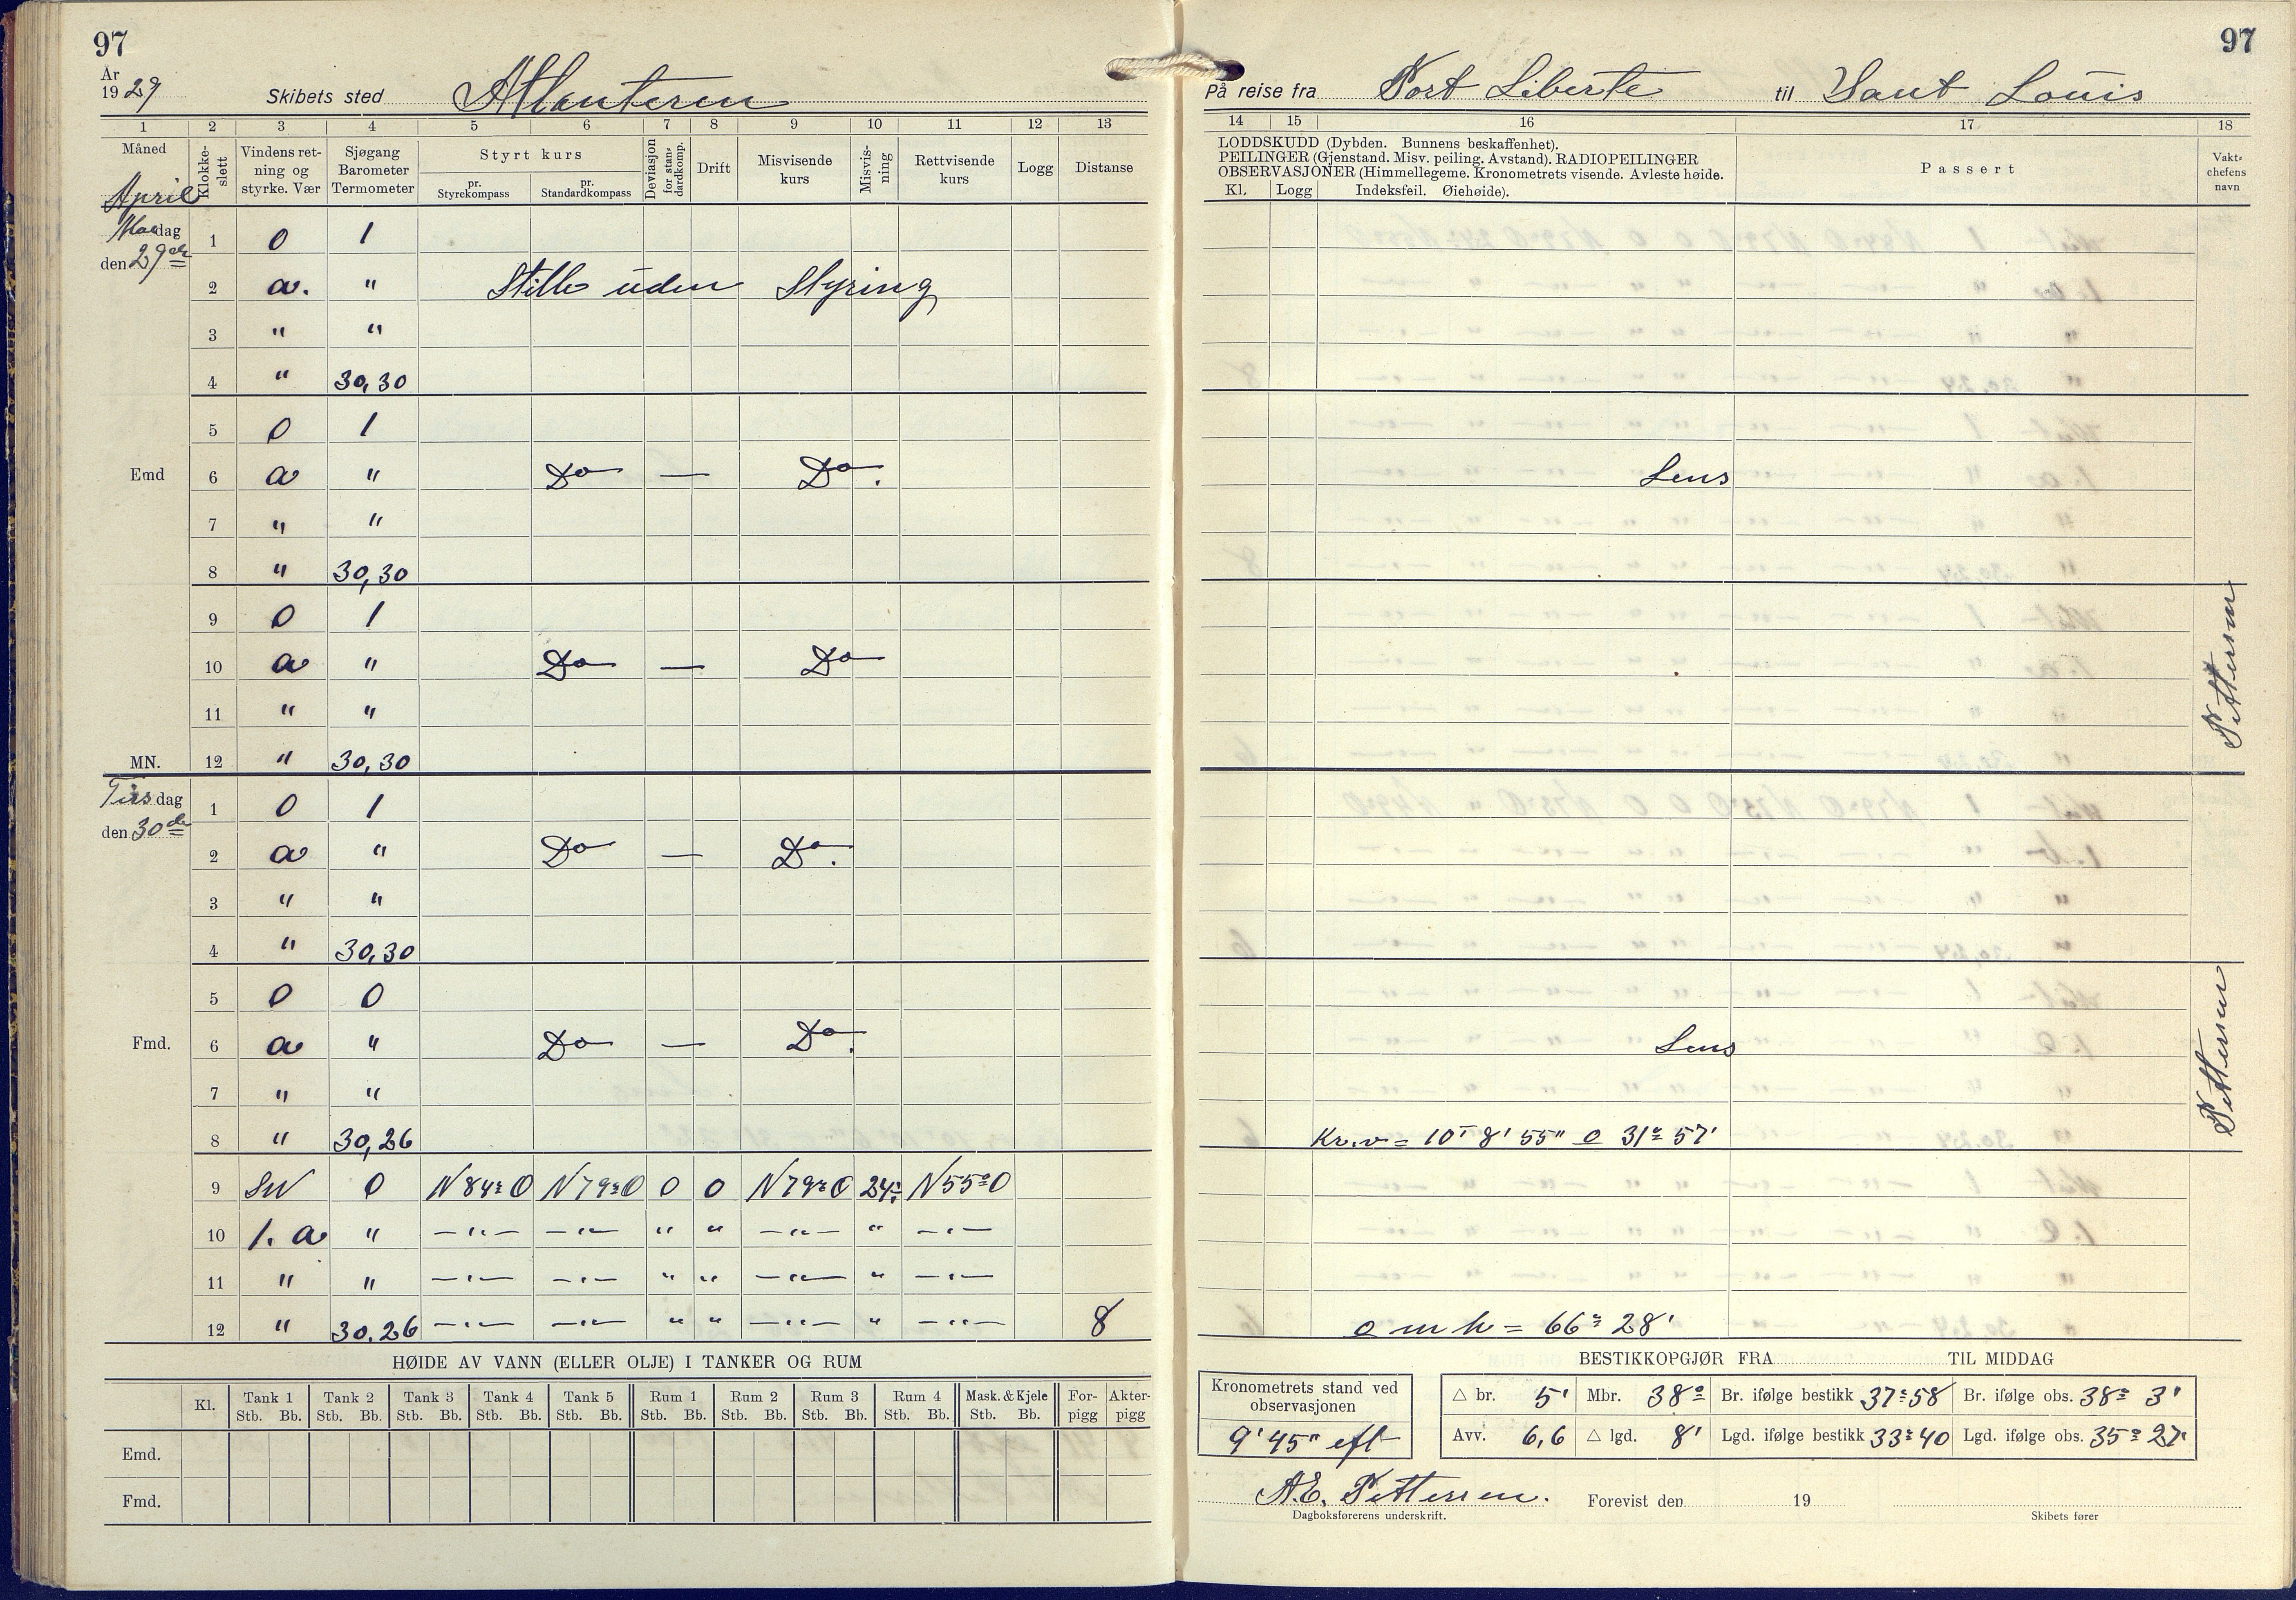 97
År
1929 Skibets sted Atlanteren
1 2 3 4 5 6 7 8 9 10 11 12 13
Måned Klokkeslett Vindens retning og styrke. Vær Sjøgang Barometer Termometer Styrt kurs pr. Styrekompass pr. Standardkompass Deviasjon for standardkomp. Drift Misvisende kurs Misvisning Rettvisende kurs Logg Distanse
April
Mandag 1 0 1
den 29de
2 a. " Stille uden Styring
3 " "
4 " 30,30
5 0 1
Emd 6 a " Do — Do.
7 " "
8 " 30,30
9 0 1
10 a " Do — Do
11 " "
MN. 12 " 30,30
Tirsdag 1 0 1
den 30de
2 a " Do — Do.
3 " "
4 " 30,30
5 0 0
Fmd. 6 a " Do — Do.
7 " "
8 " 30,26
9 SW 0 N84°O N79°O 0 0 N79°O 24° N55°O
10 1. a " —"— —"— " " —"— " —"—
11 " " —"— —"— " " —"— " —"—
12 " 30.26 —"— —"— " " —"— " —"— 8
HØIDE AV VANN (ELLER OLJE) I TANKER OG RUM
Kl. Tank 1 Tank 2 Tank 3 Tank 4 Tank 5 Rum 1 Rum 2 Rum 3 Rum 4 Mask. & Kjele For-pigg Akter-pigg
Stb. Bb. Stb. Bb. Stb. Bb. Stb. Bb. Stb. Bb. Stb. Bb. Stb. Bb. Stb. Bb. Stb. Bb. Stb. Bb.
Emd.
Fmd.
97
På reise fra Port Liberte til Sant Louis
14 15 16 17 18
LODDSKUDD (Dybden. Bunnens beskaffenhet).
PEILINGER (Gjenstand. Misv. peiling. Avstand). RADIOPEILINGER
OBSERVASJONER (Himmellegeme. Kronometrets visende. Avleste høide.
Kl. Logg Indeksfeil. Øiehøide).
Passert
Vakt-chefens navn
Lens
Pettersen
Lens
Pettersen
Kr.v = 10T 8' 55" o 31° 57'
o m h = 66° 28'
BESTIKKOPGJØR FRA TIL MIDDAG
Kronometrets stand ved observasjonen
9' 45" eft
△ br. 5' Mbr. 38° Br. ifølge bestikk 37°58 Br. ifølge obs. 38° 3'
Avv. 6,6 △ lgd. 8' Lgd. ifølge bestikk 33°40 Lgd. ifølge obs. 35° 27'
A.E. Pettersen.
Dagboksførerens underskrift.
Forevist den 19
Skibets fører